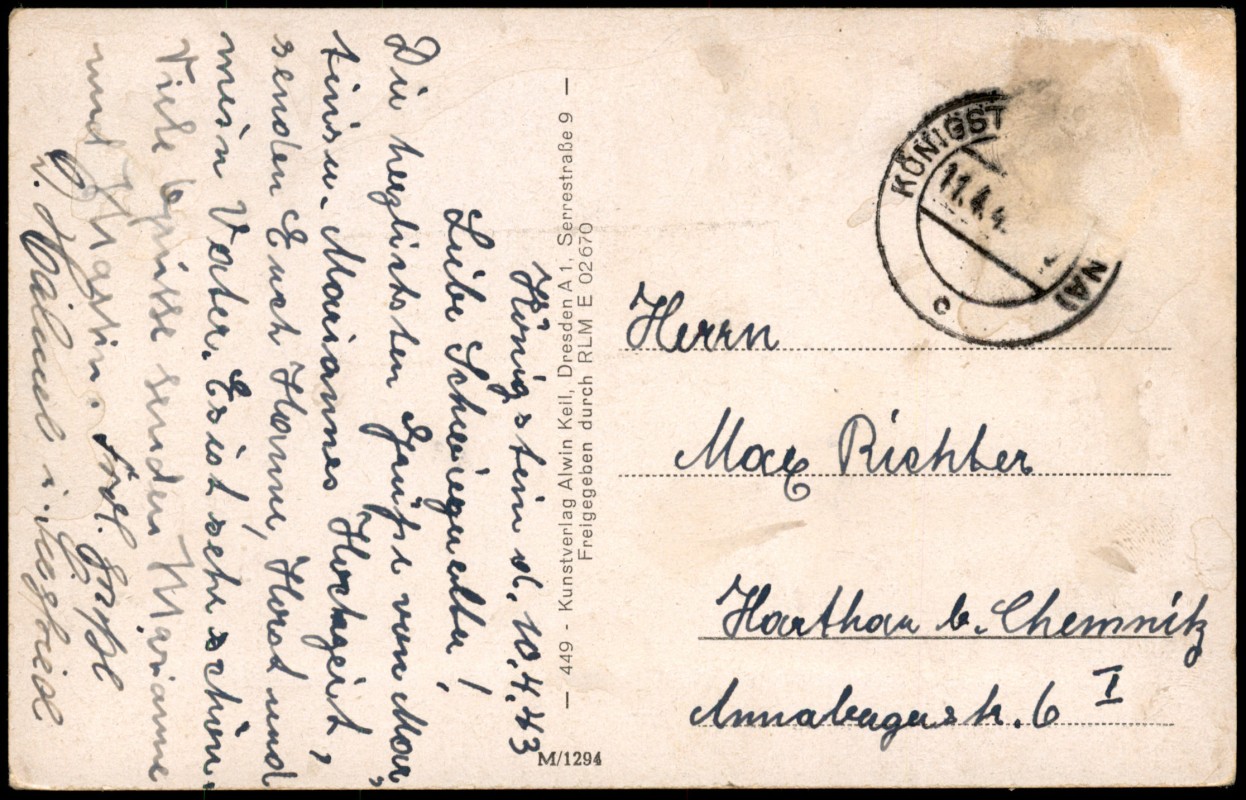 Königstein d. 10.4.43
Liebe Schwiegereltern!
Die herzlichsten Grüße von Mar„
tins u. Mariannes Hochzeit,
senden Euch Hanne, Horst und
mein Vater. Es ist sehr schön.
Viele Grüsse senden Marianne
und Martin. Frdl. Grüße
u. Siegfried
— 449 - Kunstverlag Alwin Keil, Dresden A 1, Serrestraße 9 —
Freigegeben durch RLM E 02670
M/1294
KÖNIGST
11.4.4
c
Herrn
Max Richter
Harthau b. Chemnitz
Annabergerstr. 6 I